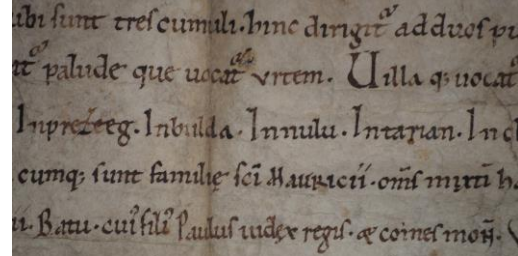 ubi sunt tres cumuli. hinc dirigit᷑ ad duos pu
it᷑ palude que uocat᷑ vrtem. Uilla q; uocat
Inprezeeg. Inbulda. Innulu. Intarian. Incl
cumq; sunt familię sc̄i Mauricii. om̄s mitti h
ii. Batu. cui᷒ fili᷒ Paulus iudex regis. & comes mon̄. V